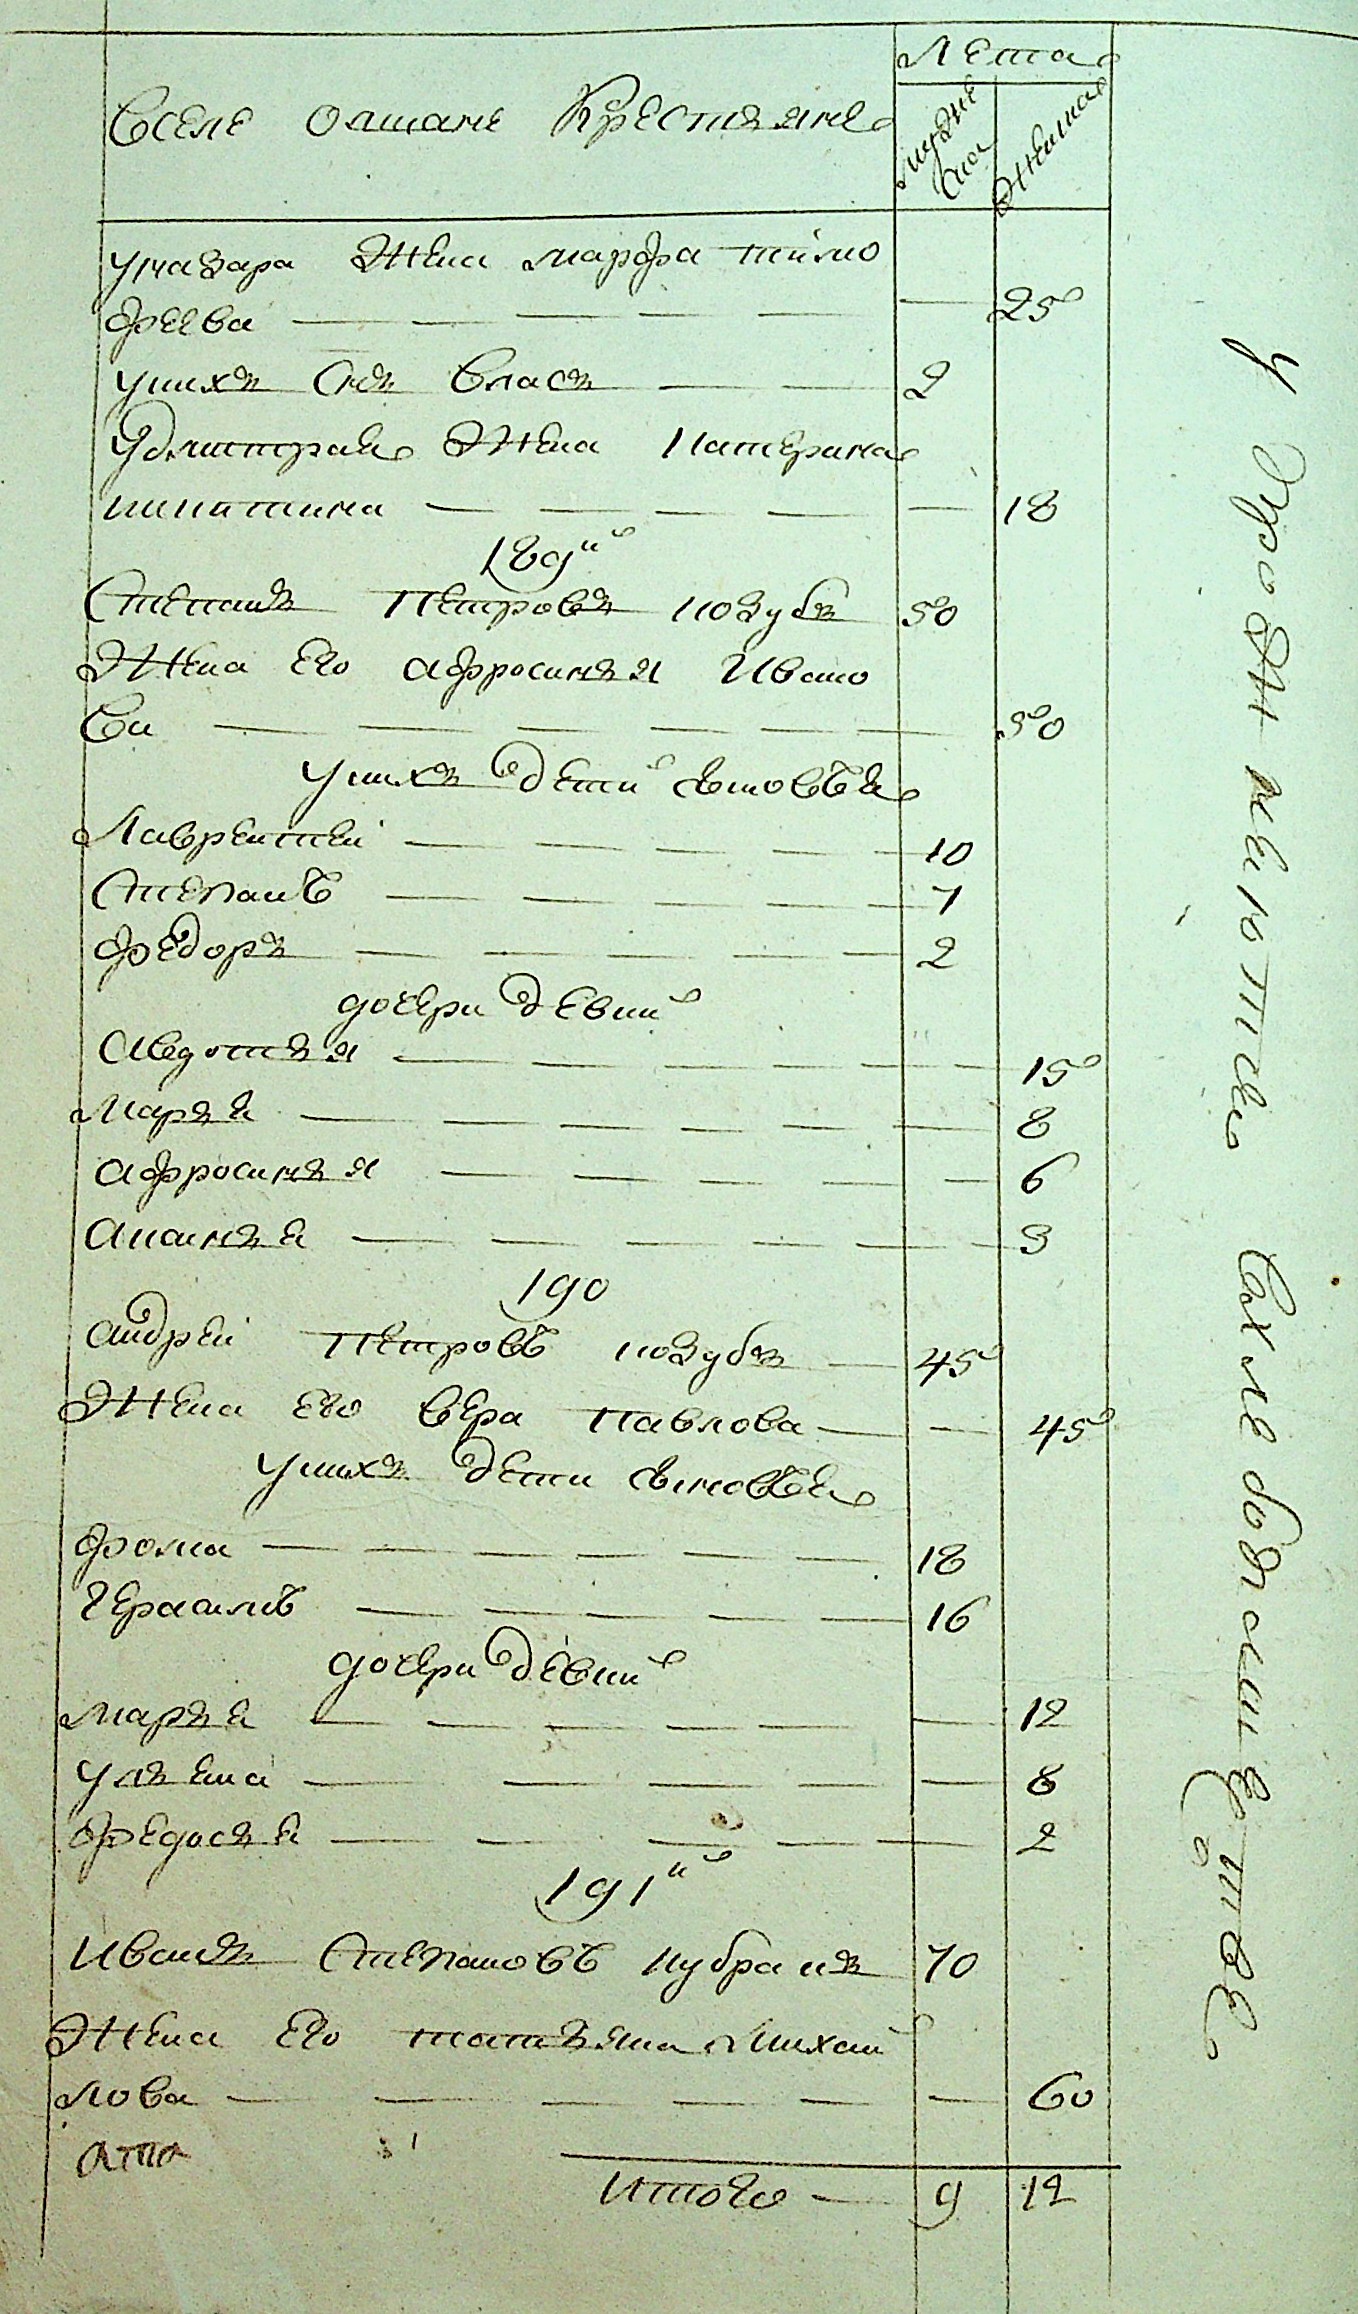 Лета
Вселе олшане Крестьяне
мужеска
женска
Уназара Жена марфа тимо
феева — 25
унихъ Снъ Власъ — 2
Удмитрая Жена Катерина
никитина — 18
189й
Степанъ Петровъ козубъ 50
Жена Его афросинья Ивано
ва — 50
унихъ дети сыновья
Лаврентей — 10
Степанъ — 7
Федоръ — 2
дочери девки
Авдотья — 15
Марья — 8
афросинья — 6
Ананья — 3
190
андрей Петровъ козубъ — 45
Жена Его Вера Павлова — 45
унихъ дети сыновья
фома — 18
Герасимъ — 16
дочери девки
Марья — 12
Ульяна — 8
федосья — 2
191й
Иванъ Степановъ 70
Жена Его татьяна Михай
лова — 60
Итого — 9 12